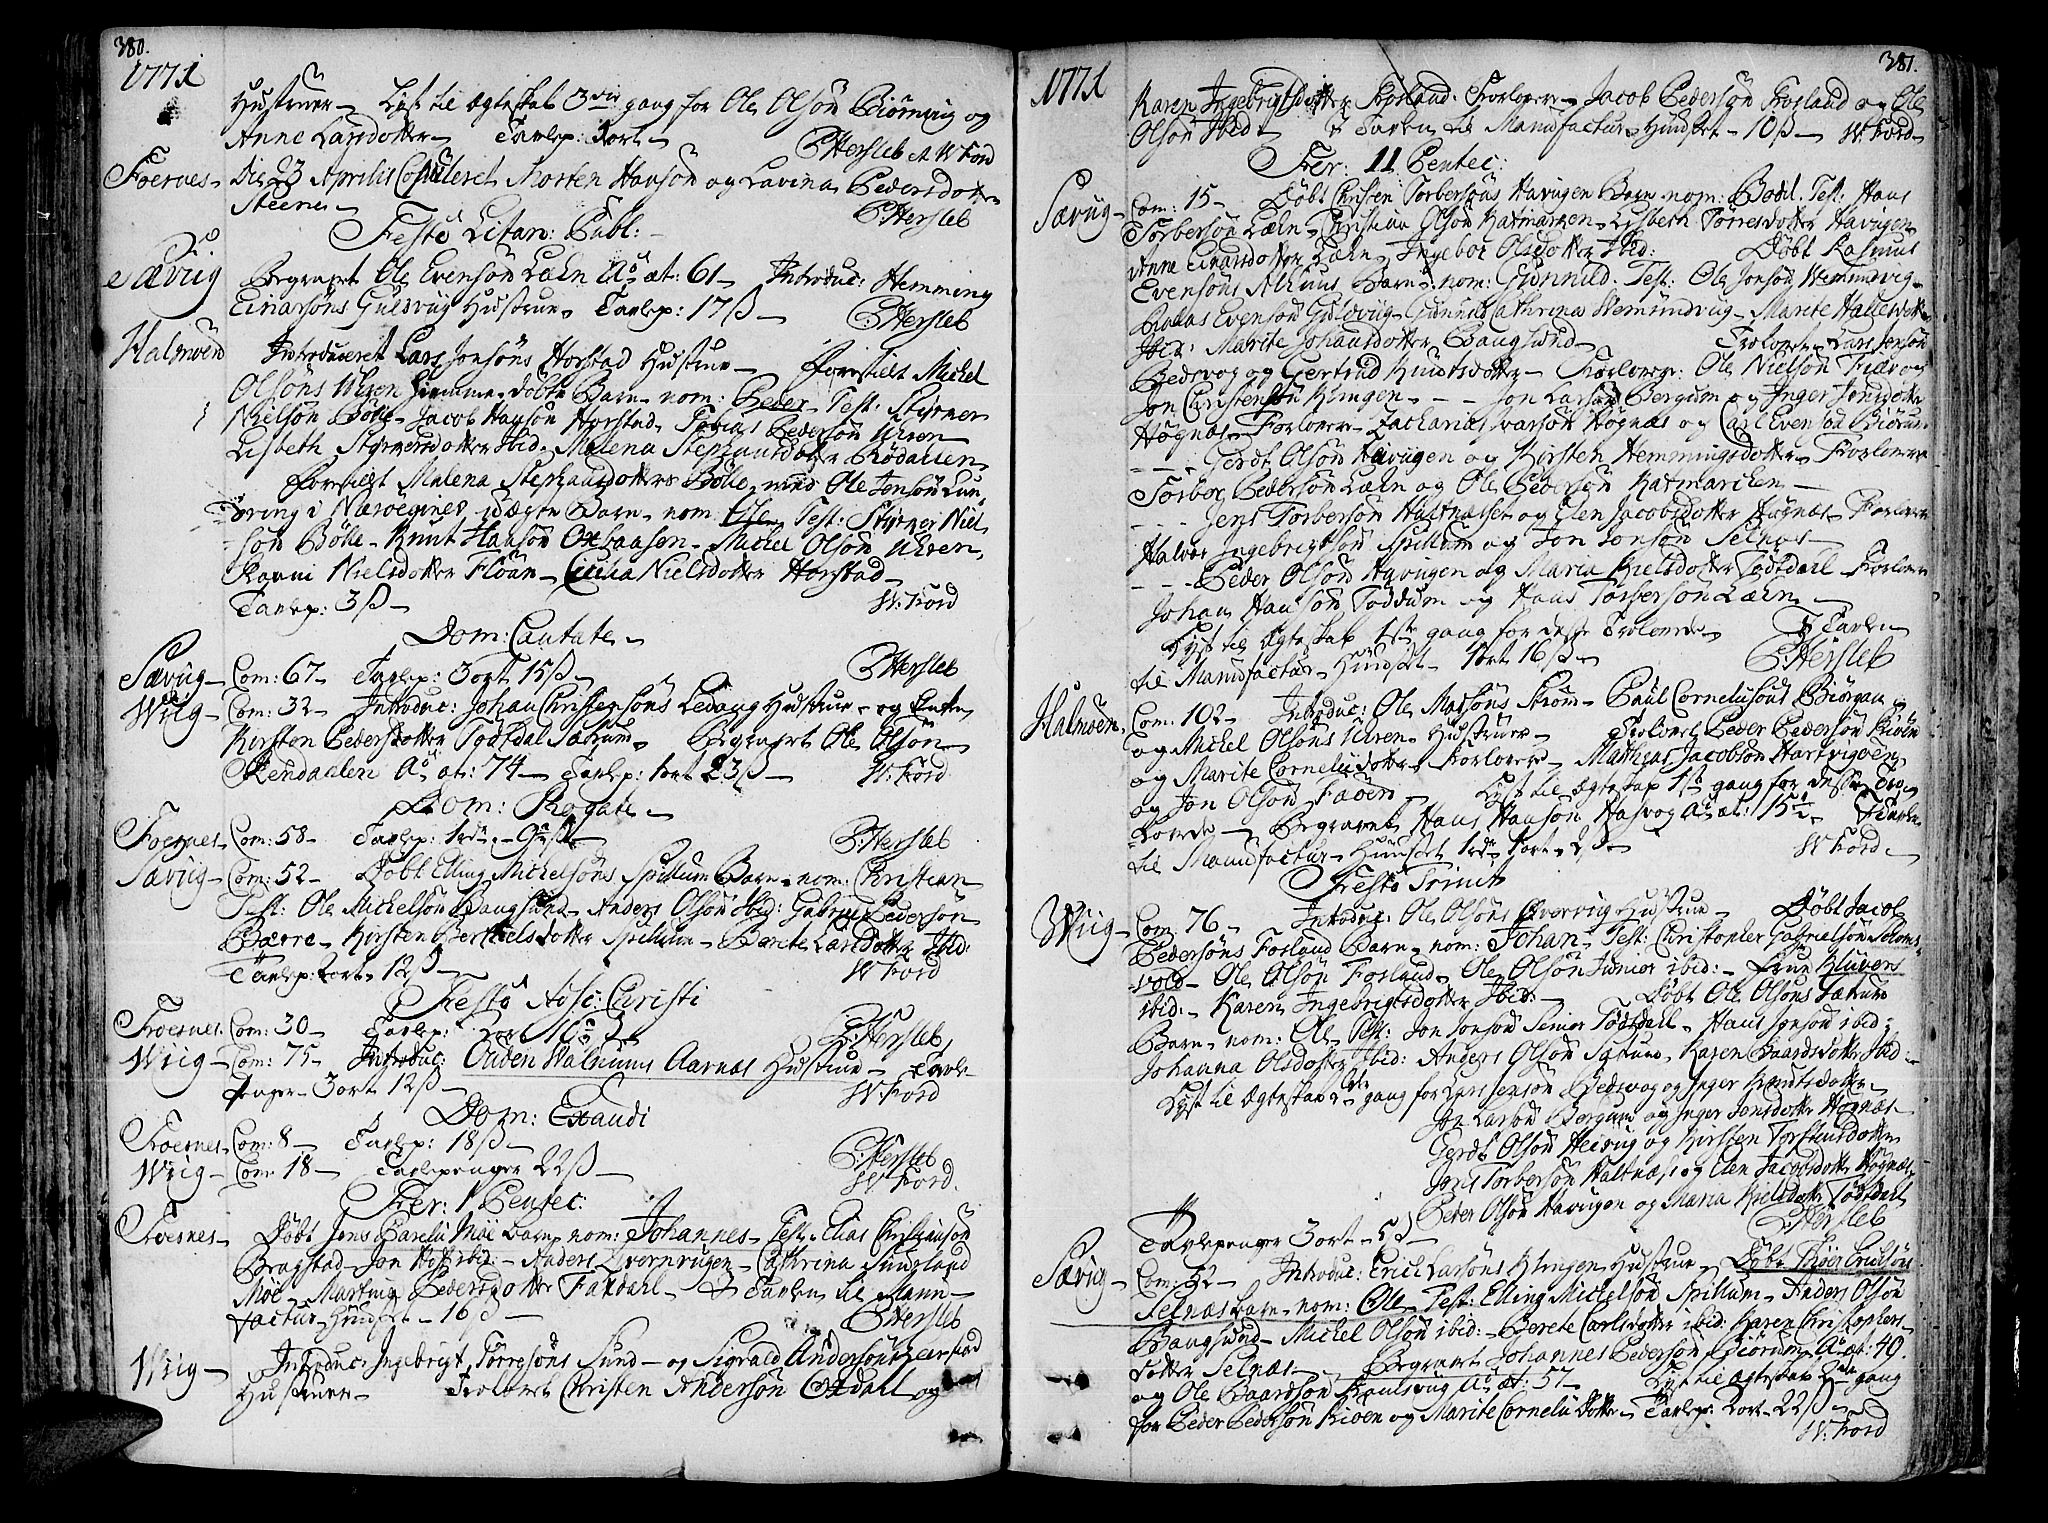 380.
1771
Hustruer – Lyst til Ægteskab 3die gang for Ole Olsøn Biørnvig og
Anne Larsdotter – Tavlep: 1 ort –
P: Hersleb A W Ford
Foesnes – Die 23 Aprilis Copuleret Morten Hansøn og Lavina Pedersdotter
Steene –
P: Hersleb
Festo Litan: Publ: –
Sævig Begravet Ole Evensøn Læln Ao æt: 61 – Introduc: Hemming
Einarsøns Gulsvig Hustrue – Tavlep: 17 ß –
P: Hersleb
Halmoen Introduceret Lars Jonsøns Horstad Hustrue – Forestilt Michel
Olsøns Uhren hiemme døbte Barn – nom: Peder – Test: Styrner
Nielsøn Bølle – Jacob Hansøn Horstad – Tobias Pedersøn Uhren
Lisbeth Styrnersdotter Ibid – Malena Stephansdotter Rødalien
Forestilt Malena Stephansdotters Bølle – med Ole Jensøn
i Nærøe uægte Barn – nom: Ole – Test: Styrner Niel-
søn Bølle – Knut Hansøn Oxbaasen – Michel Olsøn Uhren
Karen Nielsdotter Floan – Cicilia Nielsdotter Horstad –
Tavlep: 3 ß –
W: Ford
Dom: Cantate –
Sævig – Com: 67 – Tavlep: 3 ort 15 ß –
P: Hersleb
Wiig – Com: 32 – Introduc: Johan Christensøns Ledang Hustrue – og Enke
Kirsten Pedersdotter Tødtdal Sætrum – Begravet Ole Olsøn
Rendaalen Ao æt: 74 – Tavlep: 1 ort 23 ß –
W: Ford
Dom: Rogate –
Foesnes – Com: 58 – Tavlep: 1 rdr – 9 ß –
P: Hersleb
Sævig – Com: 52 – Døbt Elling Michelsøns Spillum Barn – nom: Christian
Test: Ole Michelsøn Bangsund – Anders Olsøn Ibid: Gabriel Pedersøn
Bærre – Kirsten Bertelsdotter Spillum – Berete Larsdotter Ibid:
Tavlep: 2 ort – 12 ß –
W Ford
Festo Asc: Christi
Foesnes – Com: 30 – Tavlep:
P: Hersleb
Wiig – Com: 75 – Introduc: Ouden Aarnæs Hustrue – Tavle-
penger – 3 ort 12 ß –
W: Ford
Dom: Exaudi
Foesnes – Com: 8 – Tavlep: 18 ß –
P: Hersleb
Wiig – Com: 18 – Tavlepenger 22 ß –
W Ford.
Fer: 1 Pentec:
Foesnes – Døbt Jens Parelii Møe Barn – nom: Johannes – Test: Elias Christiansøn
Bragstad – Jon Hoff ibid: – Anders Qvernvigen – Cathrina Sund
Møe – Martina Pedersdotter Faxdahl – I Tavlen til Manu-
factur – Huuset – 16 ß –
P: Hersleb
Wiig – Introduc: Ingebrigt Torresøns Sund – og Sigvald Andersøns
Hustruer – Trolovet Christen Andersøn Oxdal og
381.
1771
Karen Ingebrigtsdotter Fosland: Forlovere – Jacob Pedersøn Fosland og Ole
Olsøn Ibid – I Tavlen til Manufactur – Huuset – 10 ß –
W: Ford –
Fer: 11 Pentec:
Sævig – Com: 15 – Døbt Christen Torbersøns Havigen Barn – nom: Bodil. Test: Hans
Torbersøn Læln – Christian Olsøn Katmarken – Lisbeth Torresdotter Havigen
Anne Einarsdotter Læln – Ingebor Olsdotter Ibid: Døbt Rasmus
Evensøns Alhuus Barn – nom: Gunnild. Test: Ole Jonsøn Wemundvig –
Evensøn Gulsvig – Gunnild Cathrina Wemundvig – Marite Hallesdotter
Ibid: Marite Johansdotter Bangsund – Trolovet – Lars Jensøn
Bedsvog og Gertrud Knudtsdotter – Forlovere: Ole Nielsøn og
Jon Christensøn Klingen – – – Jon Larsøn Bergum og Inger Jonsdotter
Høgnæs – Forlovere – Zacharias Ivarsøn Høgnæs og Carl Evensøn Biørum
– – – Gerdt Olsøn Havigen og Kirsten Hemmingsdotter – Forlovere
Torber Pedersøn Læln og Ole Pedersøn Katmarcken –
– – – Jens Torbersøn Haltnæsset og Elen Jacobsdotter Høgnæs – Forlovere
Halvor Ingebrigtsøn Spillum og Jon Jonsøn Selnæs –
– – – Peder Olsøn Havigen og Maria Kielsdotter Tødtdal – Forlovere
Johan Hansøn Toddum og Hans Torbersøn Læln –
Lyst til Ægteskab 1ste gang for desse Trolovede – I Tavlen
til Manufactur – Huuset – 1 ort 16 ß –
P: Hersleb
Halmoen – Com: 102 – Introduc: Ole Matsøns Strøm – Paul Cornelisøns Biørgan
og Michel Olsøns Uhren – Hustruer – Trolovet Peder Pedersøn Kiøen
og Marite Cornelidotter – Forlovere – Mathias Jacobsøn Hartvigoen
og Jon Olsøn – Lyst til Ægteskab 1ste gang for desse Tro-
lovede – Begravet Hans Hansøn Hasvog Ao æt: 15 – I Tavlen
til Manufactur – Huuset 1 rdr 1 ort – 2 ß –
W Ford –
Festo Trinit:
Wiig – Com: 76 – Introduc: Ole Olsøns Hustrue – Døbt Jacob
Pedersøns Fosland Barn – nom: Johan – Test: Christopher Gabrielsøn
– Ole Olsøn Fosland – Ole Olsøn Junior ibid: – Frue Kluvers
ibid: – Karen Ingebrigtsdotter Ibid: – Døbt Ole Olsøns Sætrum
Barn – nom: Ole – Test: Jon Jonsøn Senior Tødtdal – Hans Jonsøn ibid:
Johanna Olsdotter Ibid: Anders Olsøn Sætrum – Karen Baardsdotter Ibid: –
Lyst til Ægteskab 2den gang for Lars Jensøn Bedsvog og Inger Knudtsdotter –
Jon Larsøn Bergum og Inger Jonsdotter Høgnæs –
Gerdt Olsøn Heivig og Kirsten Torstensdotter
Jens Torbersøn Haltnæs og Elen Jacobsdotter Høgnæs –
Peder Olsøn Havigen og Maria Kielsdotter Tødtdal
Tavlepenger 3 ort – 5 ß –
P: Hersleb
Sævig – Com: 52 – Introduc: Erich Larsøns Klingen Hustrue – Døbt Erichsøns
Selnæs Barn – nom: Ole – Test: Elling Michelsøn Spillum – Anders Olsøn
Bangsund – Michel Olsøn ibid: – Berete Carlsdotter ibid: Karen Christophers-
dotter Selnæs – Begravet Johannes Pedersøn Biørum Ao æt: 49.
og Ole Baardsøn Ramsvig Ao æt: 57 – Lyst til Ægteskab 2den gang
for Peder Pedersøn Kiøen og Marite Cornelidotter – Tavlep: 2 ort – 22 ß –
W: Ford